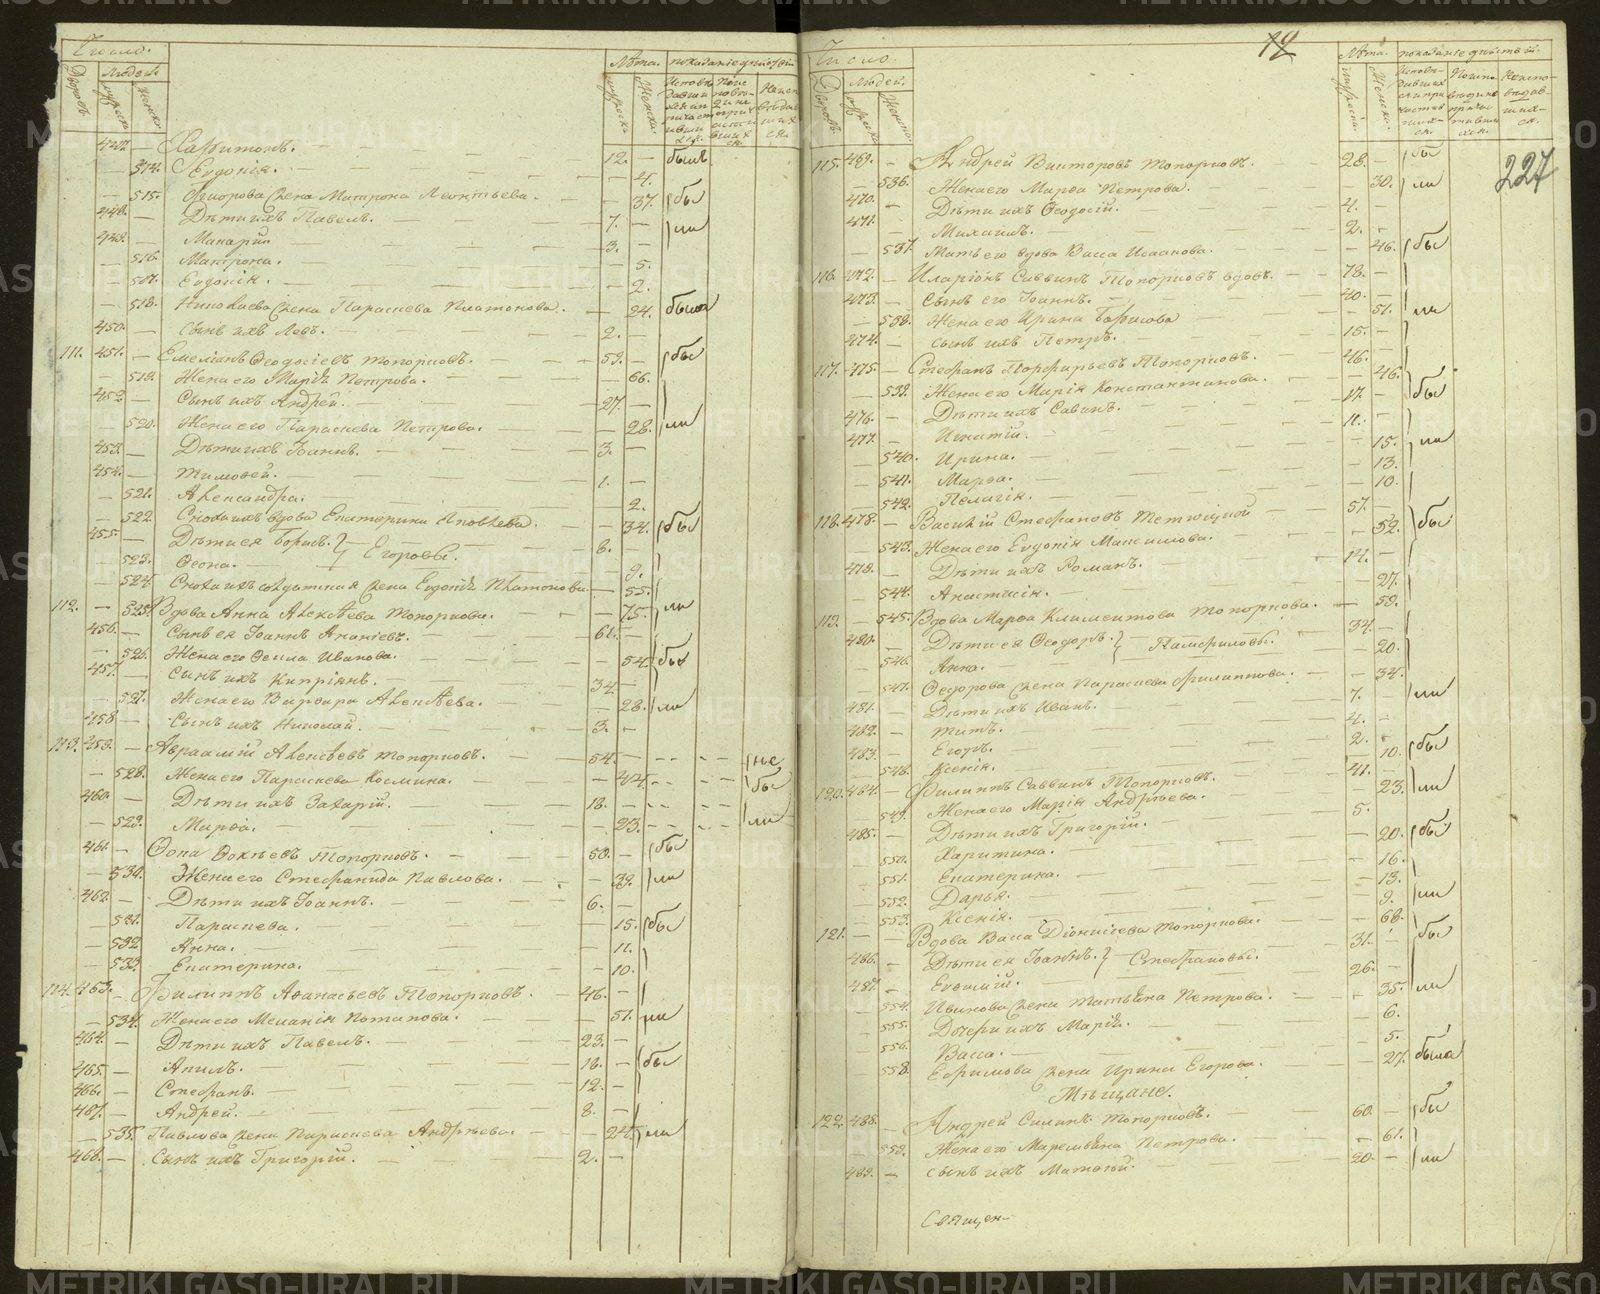 Число.
Дворовъ
Людей.
мужеска
Женска.
Лѣта.
мужеска
Женска.
показаніе дѣйствій
447. — Харитонъ. 12. — былъ
— 514. Евдокія. — 4.
— 515. Ѳеодорова жена Матрона Леонтьева. — 37. бы
448. — Дѣти ихъ Павелъ. 7. — ли
449. — Макарій 3. —
— 516. Матрона. — 5.
— 517. Евдокія. — 2.
— 518. Николаева жена Параскева Платонова. — 24. была
450. — Сынъ ихъ Левъ. 2. —
111. 451. — Емеліанъ Ѳеодосіевъ Топорковъ. 59. — бы
— 519. Жена его Марія Петрова. — 66.
452. — Сынъ ихъ Андрей. 27. —
— 520. Жена его Параскева Петрова. — 28. ли
453. — Дѣти ихъ Іоаннъ. 3. —
454. — Тимоѳей. 1. —
— 521. Александра. — 2.
— 522. Сноха ихъ вдова Екатерина Яковлева. — 34. бы
455. — Дѣти ея Борисъ. } Егоровы. 8. —
— 523. Ѳеона. — 9.
— 524. Сноха ихъ солдатская жена Евдокія Платонова. — 55.
112. — 525. Вдова Анна Алексѣева Топоркова. — 75. ли
456. — Сынъ ея Іоаннъ Ананіевъ. 61. —
— 526. Жена его Ѳекла Иванова. — 54. бы
457. — Сынъ ихъ Кипріянъ. 34. —
— 527. Жена его Варвара Алексѣева. — 28. ли
458. — Сынъ ихъ Николай. 3. —
113. 459. — Авраамій Алексѣевъ Топорковъ. 54. — не
— 528. Жена его Параскева Космина. — 44. бы
460. — Дѣти ихъ Захарій. 18. —
— 529. Марѳа. — 23. ли
461. — Ѳока Ѳокѣевъ Топорковъ. 50. — бы
— 530. Жена его Стефанида Павлова. — 39. ли
462. — Дѣти ихъ Іоаннъ. 6. —
— 531. Параскева. — 15. бы
— 532. Анна. — 11.
— 533. Екатерина. — 10.
114. 463. — Филиппъ Аѳанасьевъ Топорковъ. 46. —
— 534. Жена его Меланія Потапова. — 51. ли
464. — Дѣти ихъ Павелъ. 23. —
465. — Акилъ. 18. — бы
466. — Стефанъ. 12. —
467. — Андрей. 8. —
— 535. Павлова жена Параскева Андрѣева. — 24. ли
468. — Сынъ ихъ Григорій. 2. —
227
Число.
Дворовъ.
Людей.
мужеска
Женска.
Лѣта.
мужеска.
Женска.
показаніе дѣйствій.
115. 469. — Андрей Викторовъ Топорковъ. 28. — бы
— 536. Жена его Марѳа Петрова. — 30. ли
470. — Дѣти ихъ Ѳеодосій. 4. —
471. — Михаилъ. 2. —
— 537. Мать его вдова Васса Исаакова. — 46. бы
116. 472. — Иларіонъ Саввинъ Топорковъ вдовъ. 78. —
473. — Сынъ его Іоаннъ. 40. —
— 538. Жена его Ирина Борисова — 51. ли
474. — Сынъ ихъ Петръ. 15. —
117. 475. — Стефанъ Порфирьевъ Топорковъ. 46. —
— 539. Жена его Марія Константинова. — 46. бы
476. — Дѣти ихъ Савинъ. 17. —
477. — Игнатій. 11. —
— 540. Ирина. — 15. ли
— 541. Марѳа. — 13.
— 542. Пелагія. — 10.
118. 478. — Василій Стефановъ 57. —
— 543. Жена его Евдокія Максимова. — 52. бы
479. — Дѣти ихъ Романъ. 14. —
— 544. Анастасія. — 27.
119. — 545. Вдова Марѳа Климентова Топоркова. — 59.
480. — Дѣти ея Ѳеодоръ. } Памфиловы. 34. —
— 546. Анна. — 20.
— 547. Ѳеодорова жена Параскева Филиппова. — 34.
481. — Дѣти ихъ Иванъ. 7. — ли
482. — Титъ. 4. —
483. — Егоръ. 2. —
— 548. Ксенія. — 10. бы
120. 484. — Филиппъ Саввинъ Топорковъ. 41. —
— 549. Жена его Марія Андрѣева. — 23. ли
485. — Дѣти ихъ Григорій. 5. —
— 550. Харитина. — 20. бы
— 551. Екатерина. — 16.
— 552. Дарья. — 13.
— 553. Ксенія. — 9. ли
121. — — Вдова Васса Діонисіева Топоркова. — 68.
486. — Дѣти ея Іоаннъ. } Стефановы. 31. — бы
487. — Евѳимій. 26. —
— 554. Иванова жена Татьяна Петрова. — 35. ли
— 555. Дочери ихъ Марія. — 6.
— 556. Васса. — 5.
— 558. Ефимова жена Ирина Егорова. — 27. была
Мѣщане.
122. 488. — Андрей Силинъ Топорковъ. 60. — бы
— 559. Жена его Маремьяна Петрова. — 61.
489. — Сынъ ихъ Матѳей. 20. — ли
Священ-
METRIKI.GASO-URAL.RU